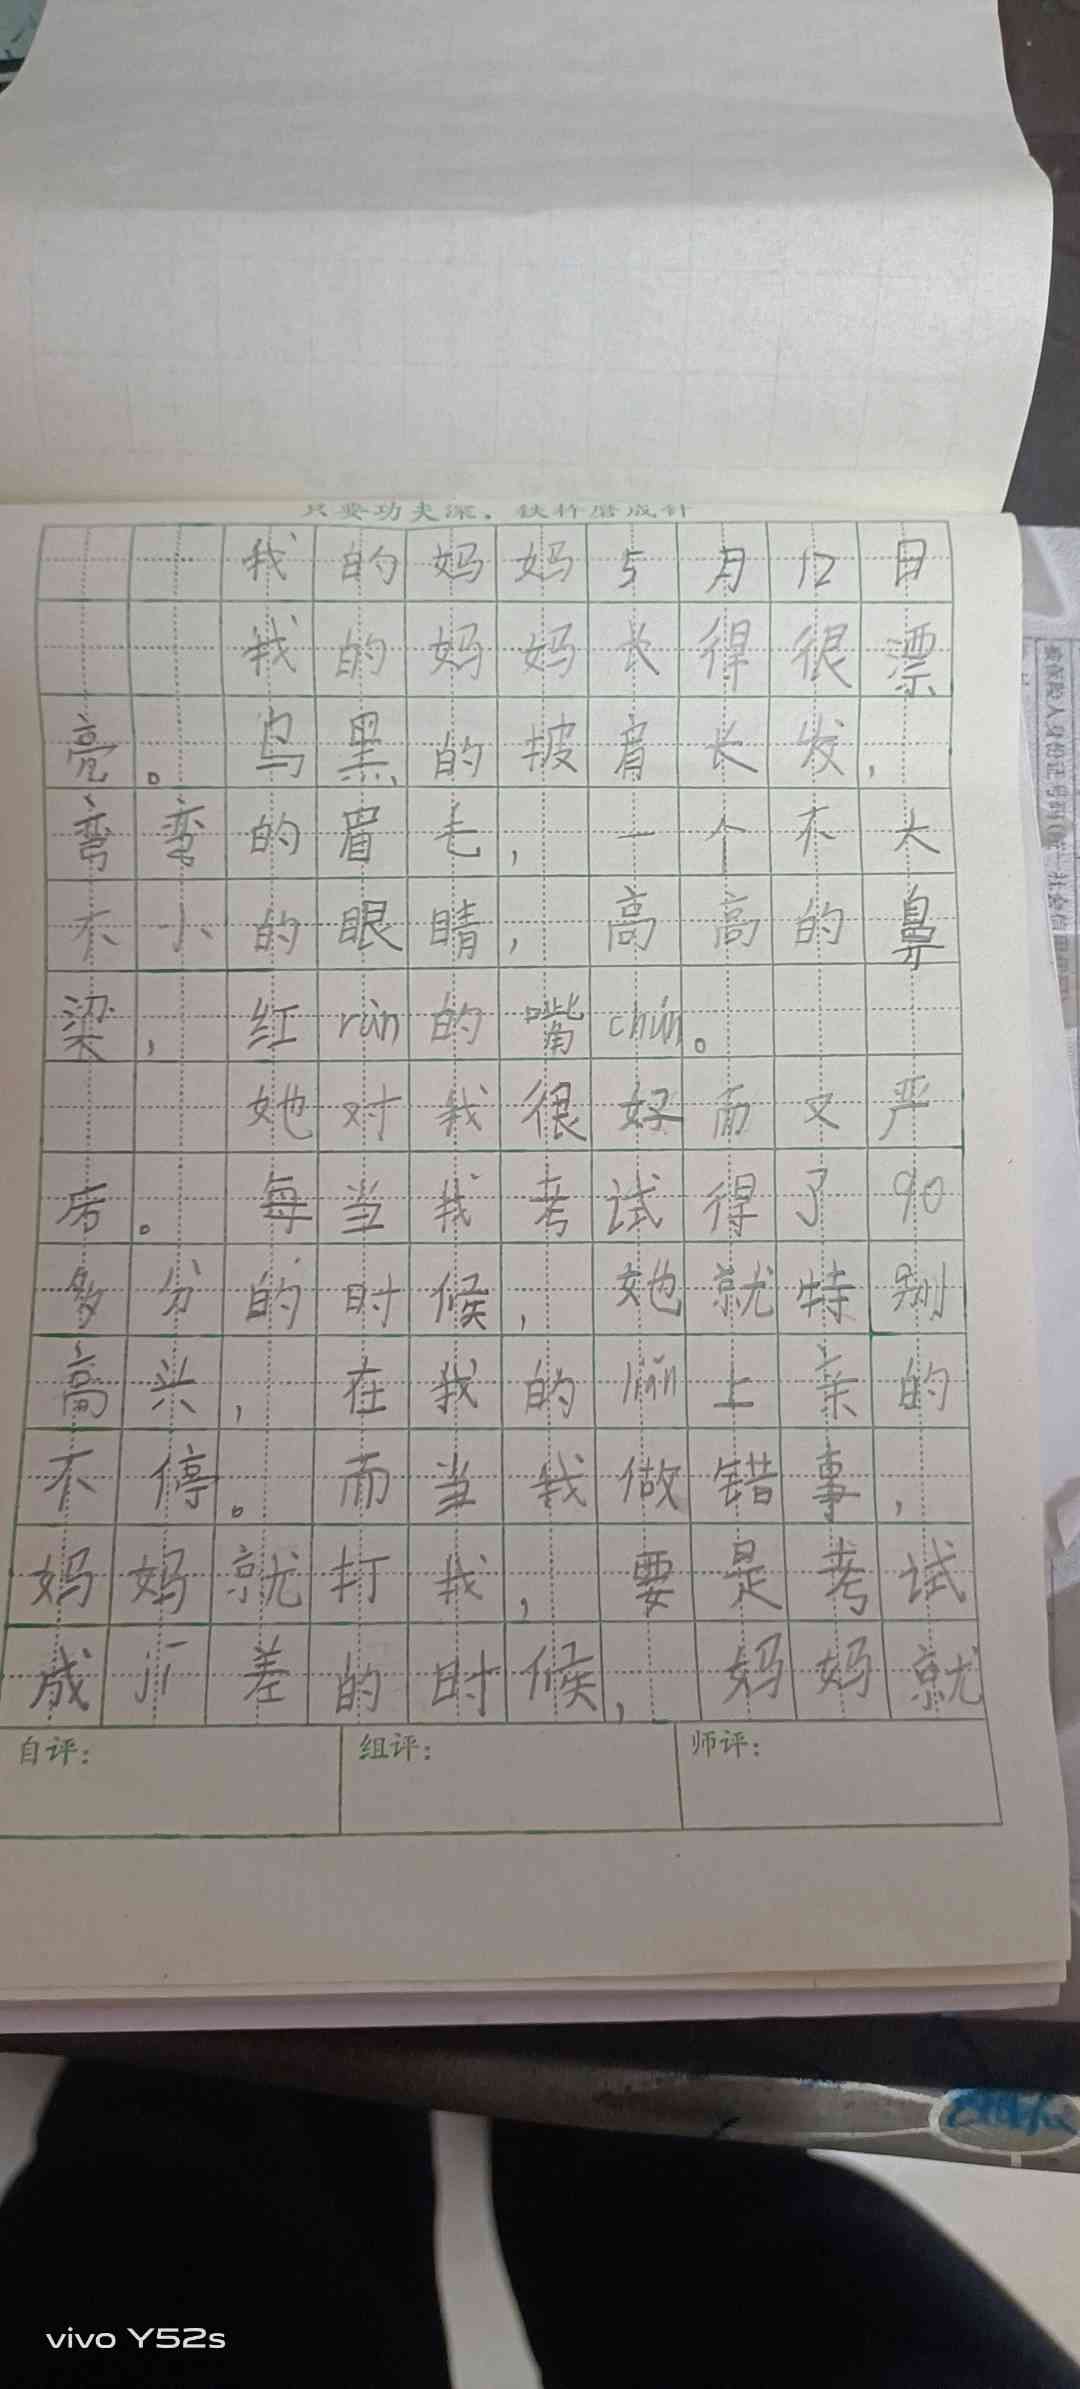 只要功夫深，铁杵磨成针
我的妈妈5月12日
我的妈妈长得很漂
亮。乌黑的披肩长发，
弯弯的眉毛，一个不大
不小的眼睛，高高的鼻
梁，红rùn的嘴chún。
她对我很好而又严
房。每当我考试得了90
多分的时候，她就特别
高兴，在我的liǎn上亲的
不停。而当我做错事，
妈妈就打我，要是考试
成jì差的时候，妈妈就
自评：
组评：
师评：
vivo Y52s